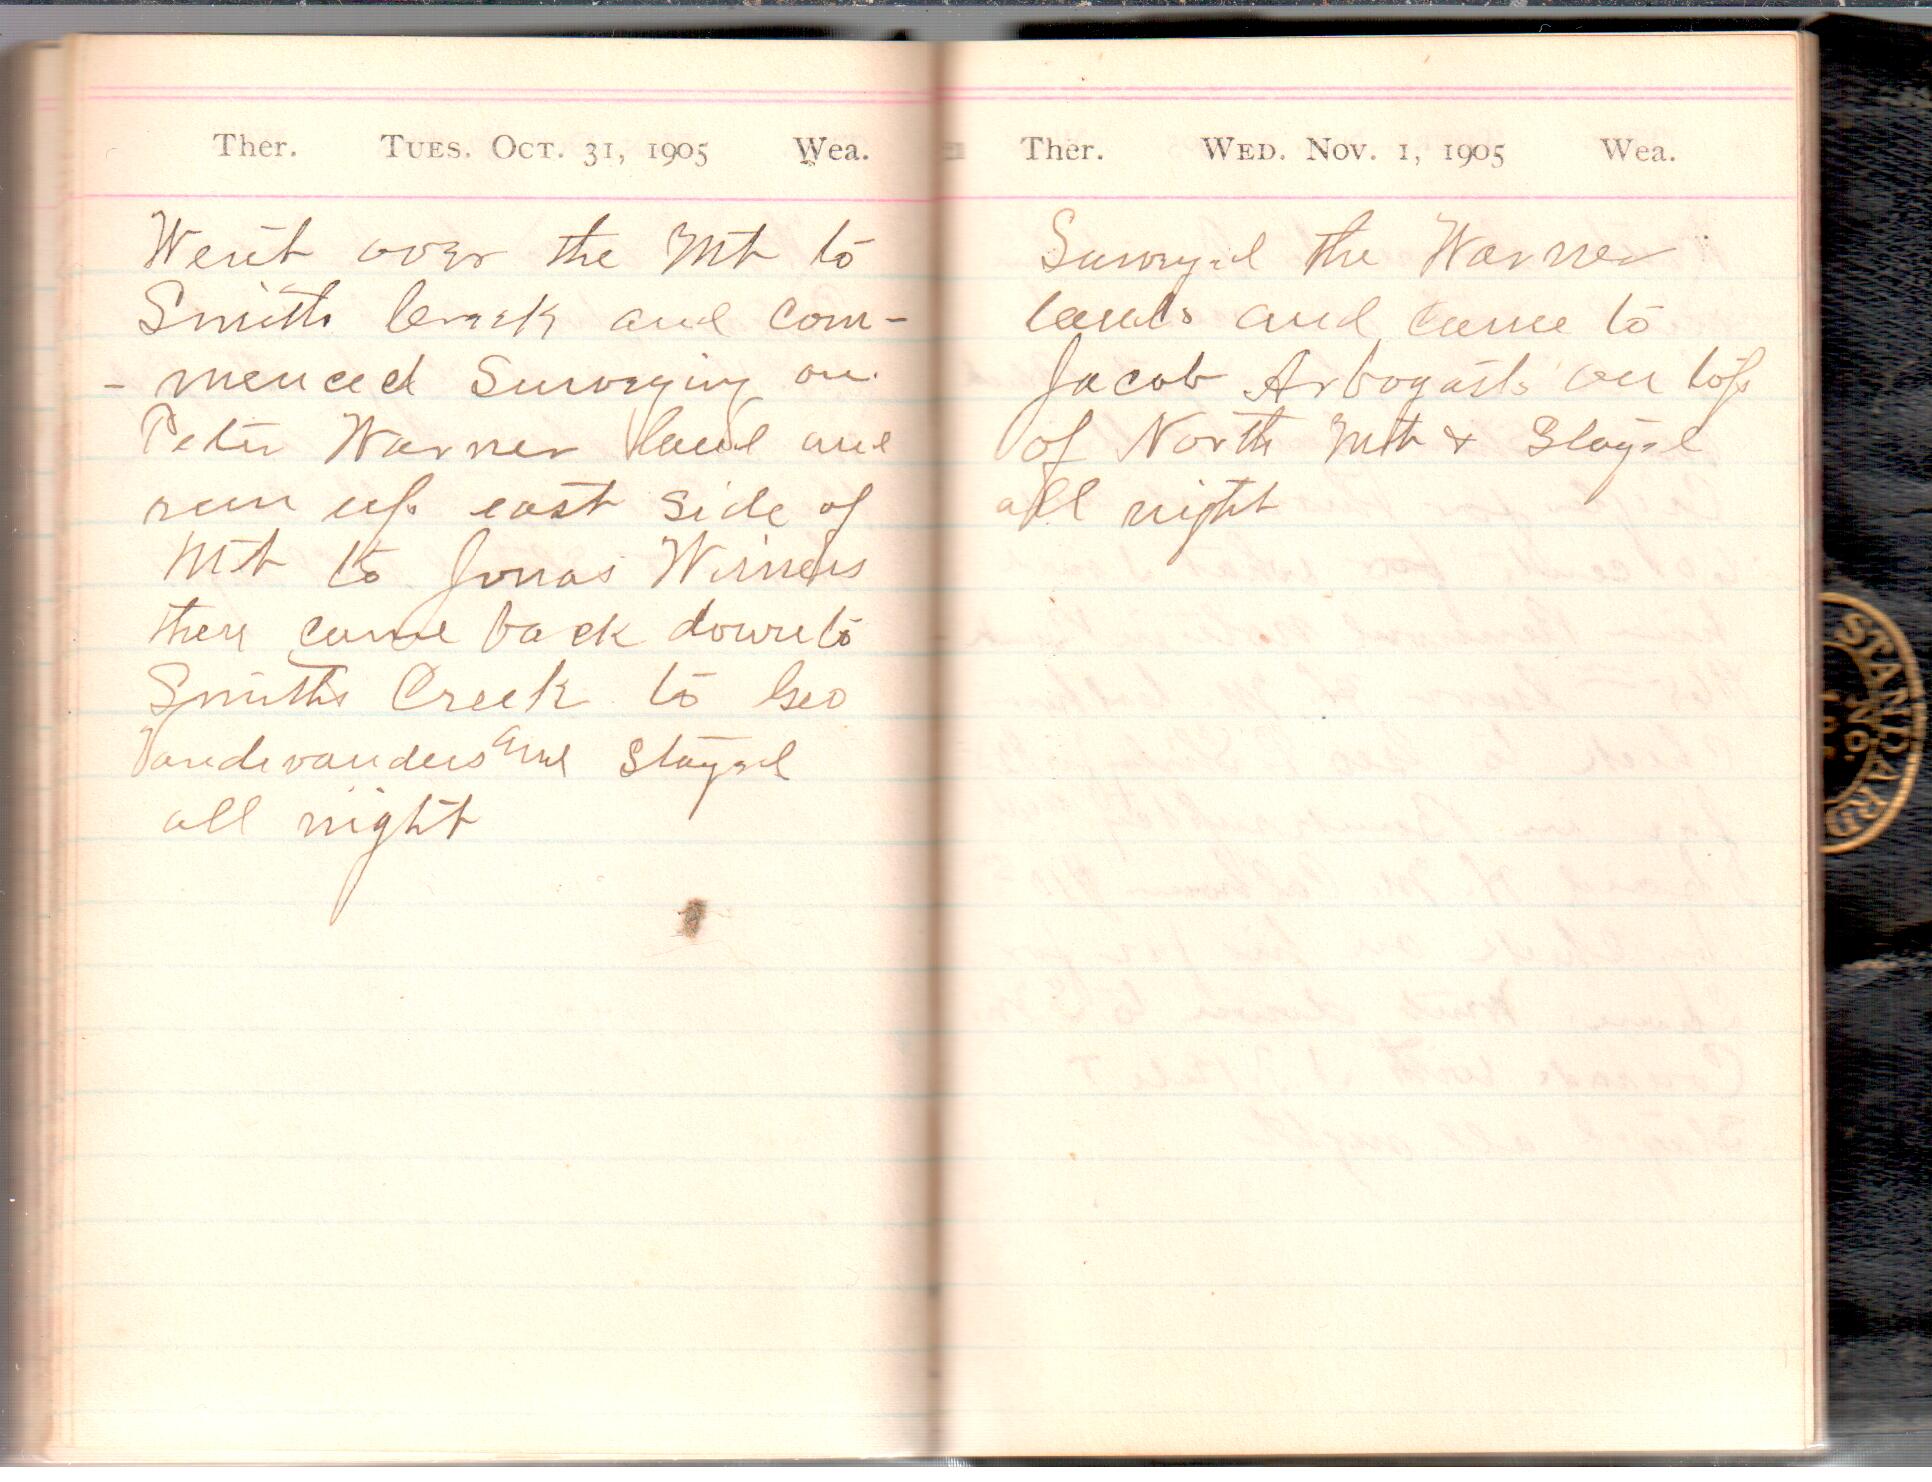 Ther. TUES. OCT. 31, 1905 Wea.
Went over the Mt to
Smith Creek and com-
- menced Surveying on
Peter Warner land and
run up east side of
Mt to Jonas
then came back down to
Smiths Creek to Geo
Vandevanders and Stayed
all night
Ther. WED. NOV. 1, 1905 Wea.
Surveyed the Warner
lands and came to
Jacob Arbogasts on top
of North Mt & Stayed
all night
STANDARD
NO.